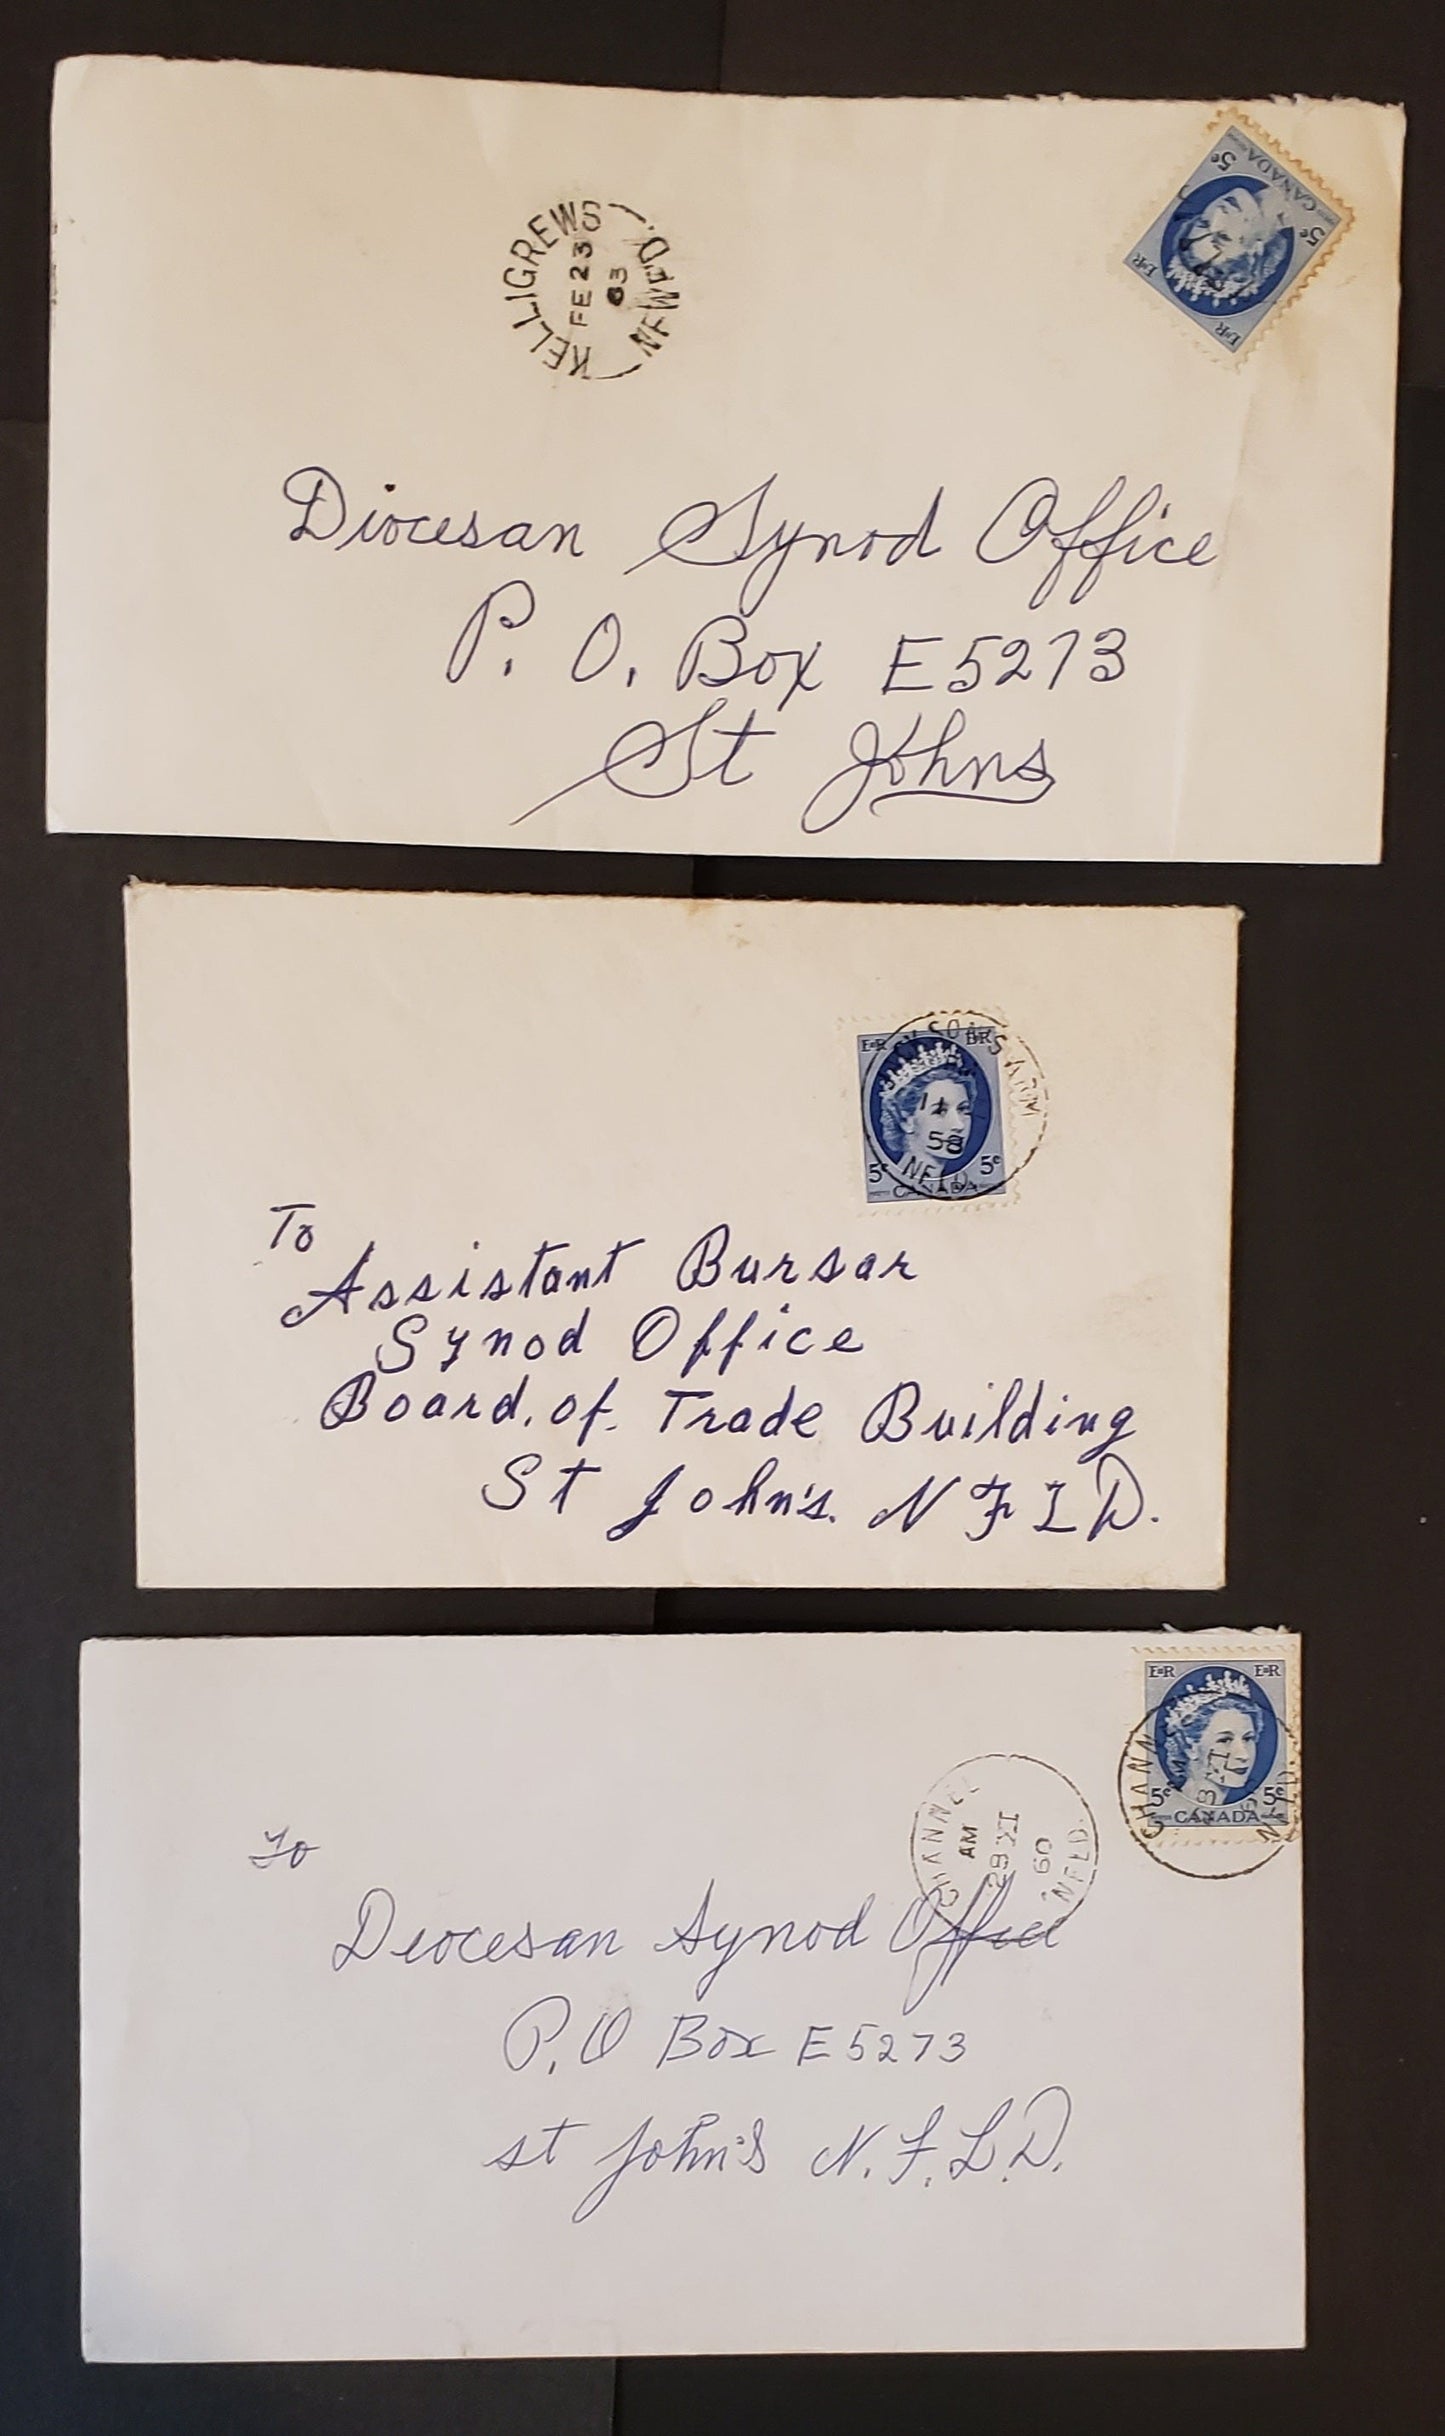 KELLIGREWS
NFWFD.
FE 23
63
5¢ CANADA 5¢
EIIR EIIR
Diocesan Synod Office
P. O. Box E5273
St Johns
EIIR EIIR
ARM
14
58
NFLD.
5¢ CANADA 5¢
To
Assistant Bursar
Synod Office
Board. of. Trade Building
St John's. NFLD.
EIIR EIIR
5¢ CANADA 5¢
CHANN
NFLD.
CHANNEL
AM
29 XI
60
NFLD.
To
Diocesan Synod Office
P.O Box E5273
st John's N.F.L.D.